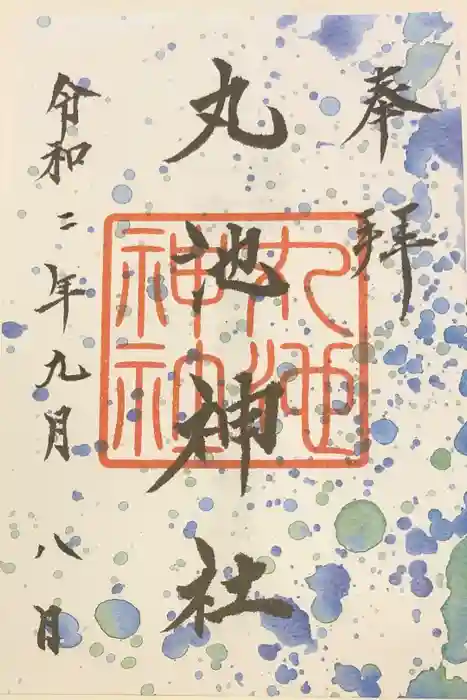 奉拝
丸池神社
丸池
神社
令和二年九月八月